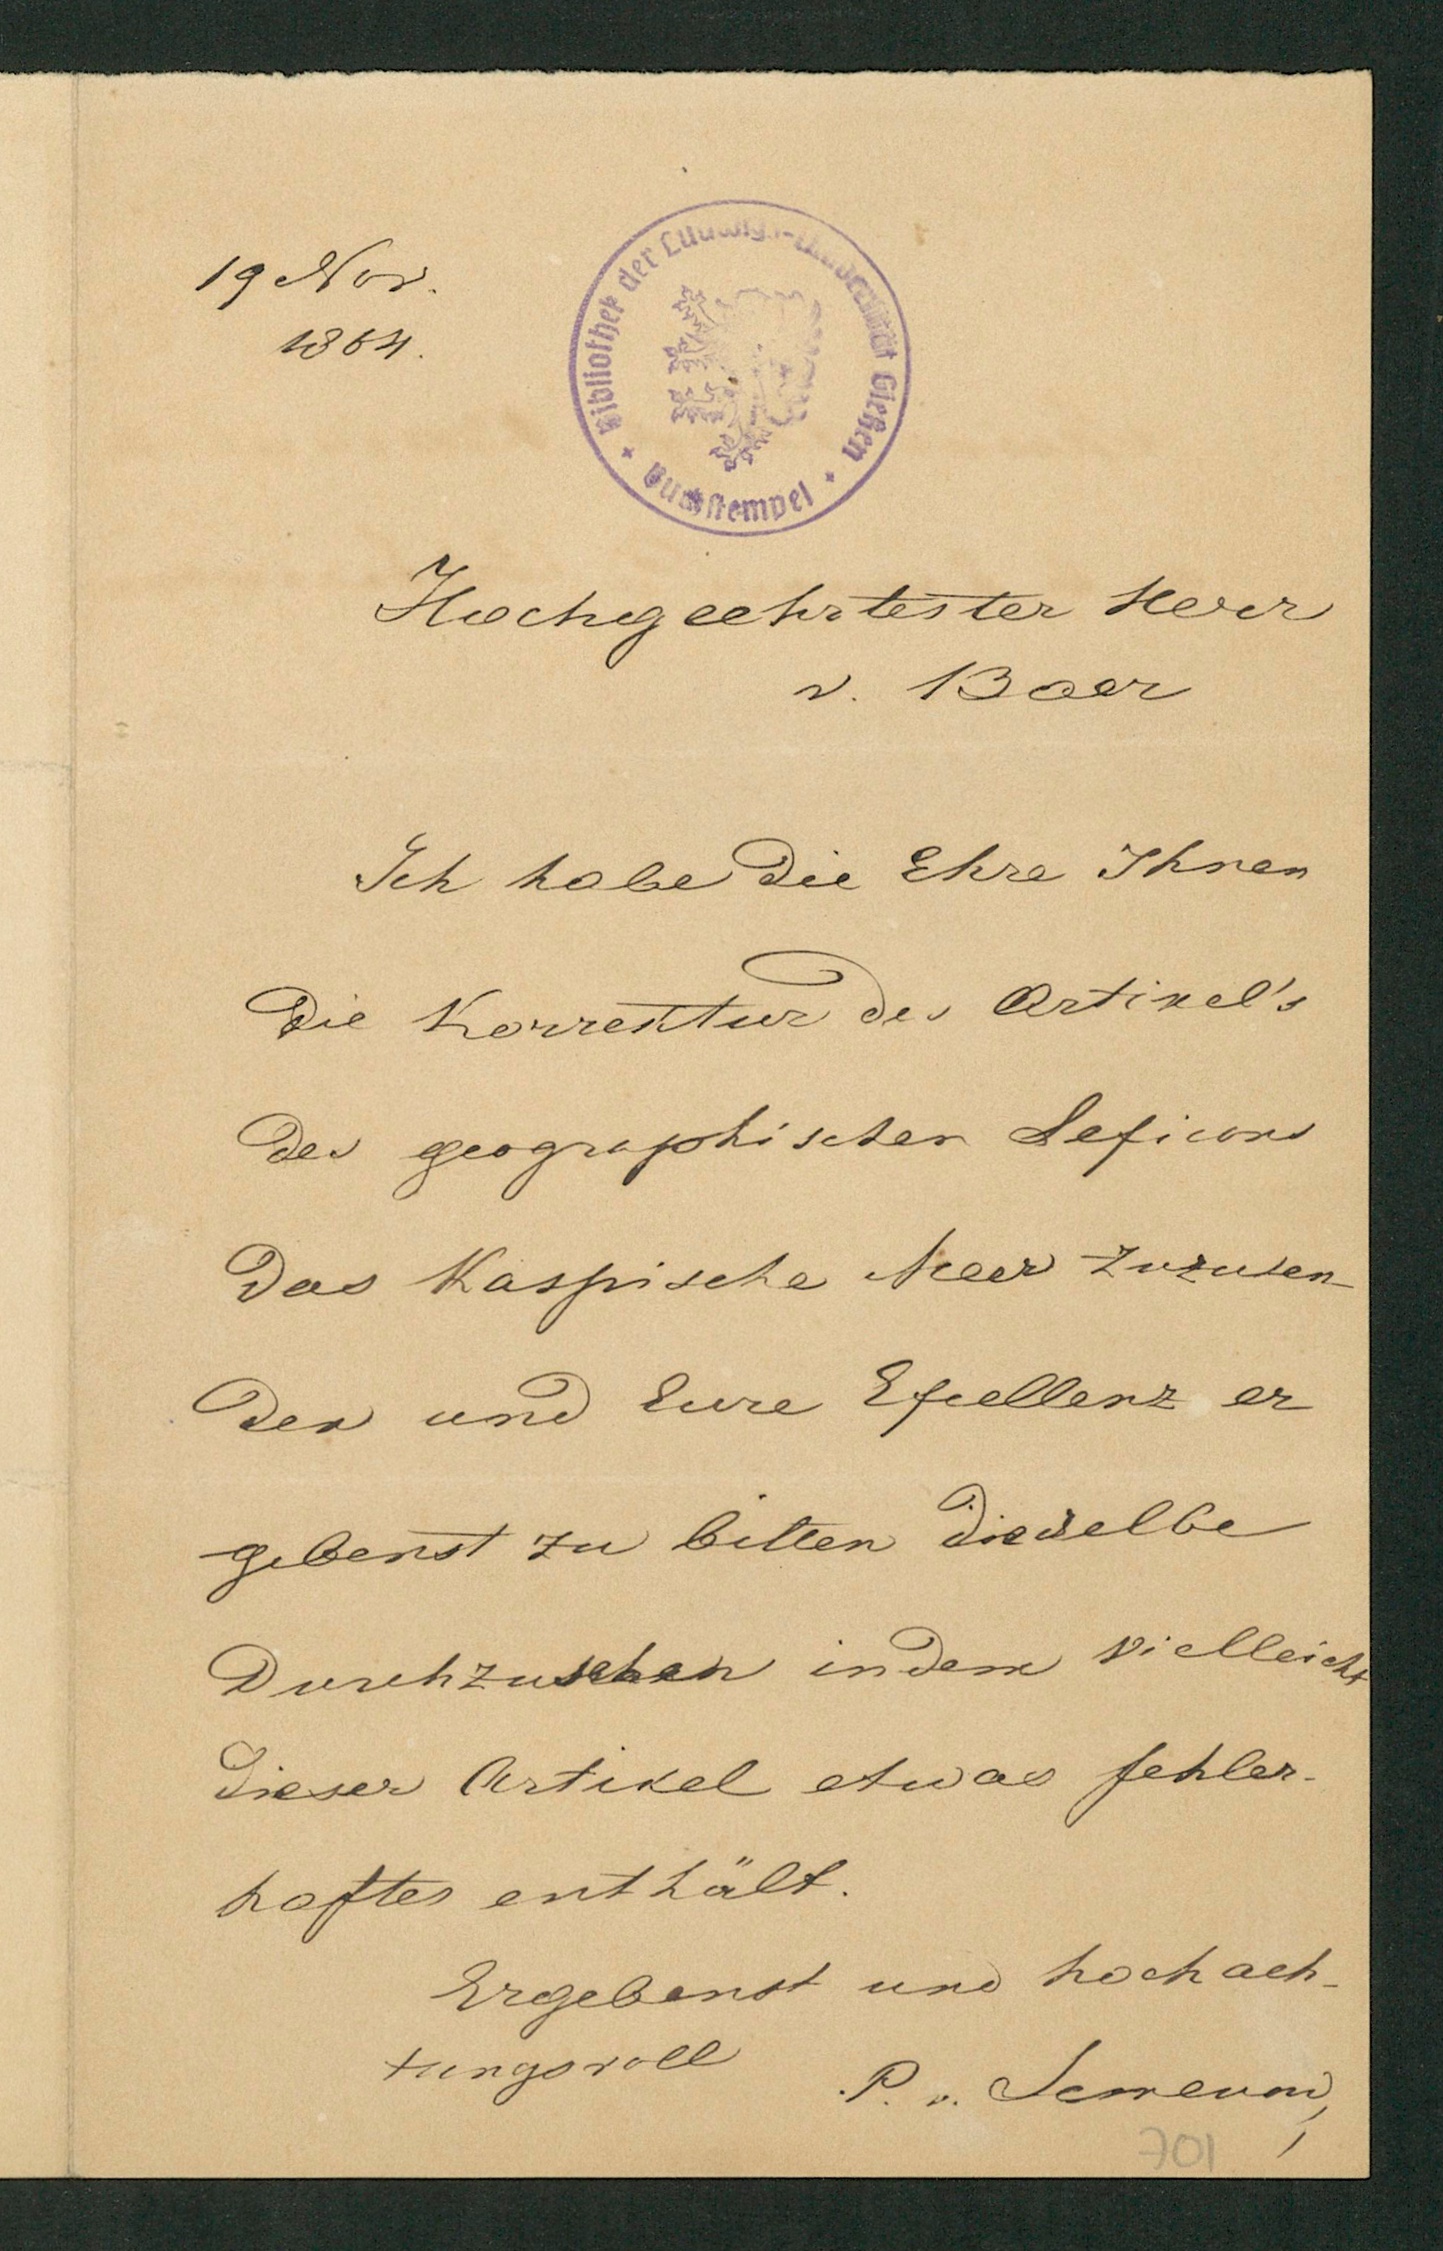 19 Nov.
1864.
Bibliothek der Ludwigs-Universität Gießen
Buchstempel
Hochgeehrtester Herr
v. Baer
Ich habe die Ehre Ihnen
die Korrektur des Artikel's
des geographischen Lexicons
das Kaspische Meer zuzusen-
den und Eure Excellenz er
gebenst zu bitten dieselbe
durchzusehen indem vielleicht
dieser Artikel etwas fehler-
haftes enthält.
Ergebenst und hochach-
tungsvoll
P. v. Semenow
701